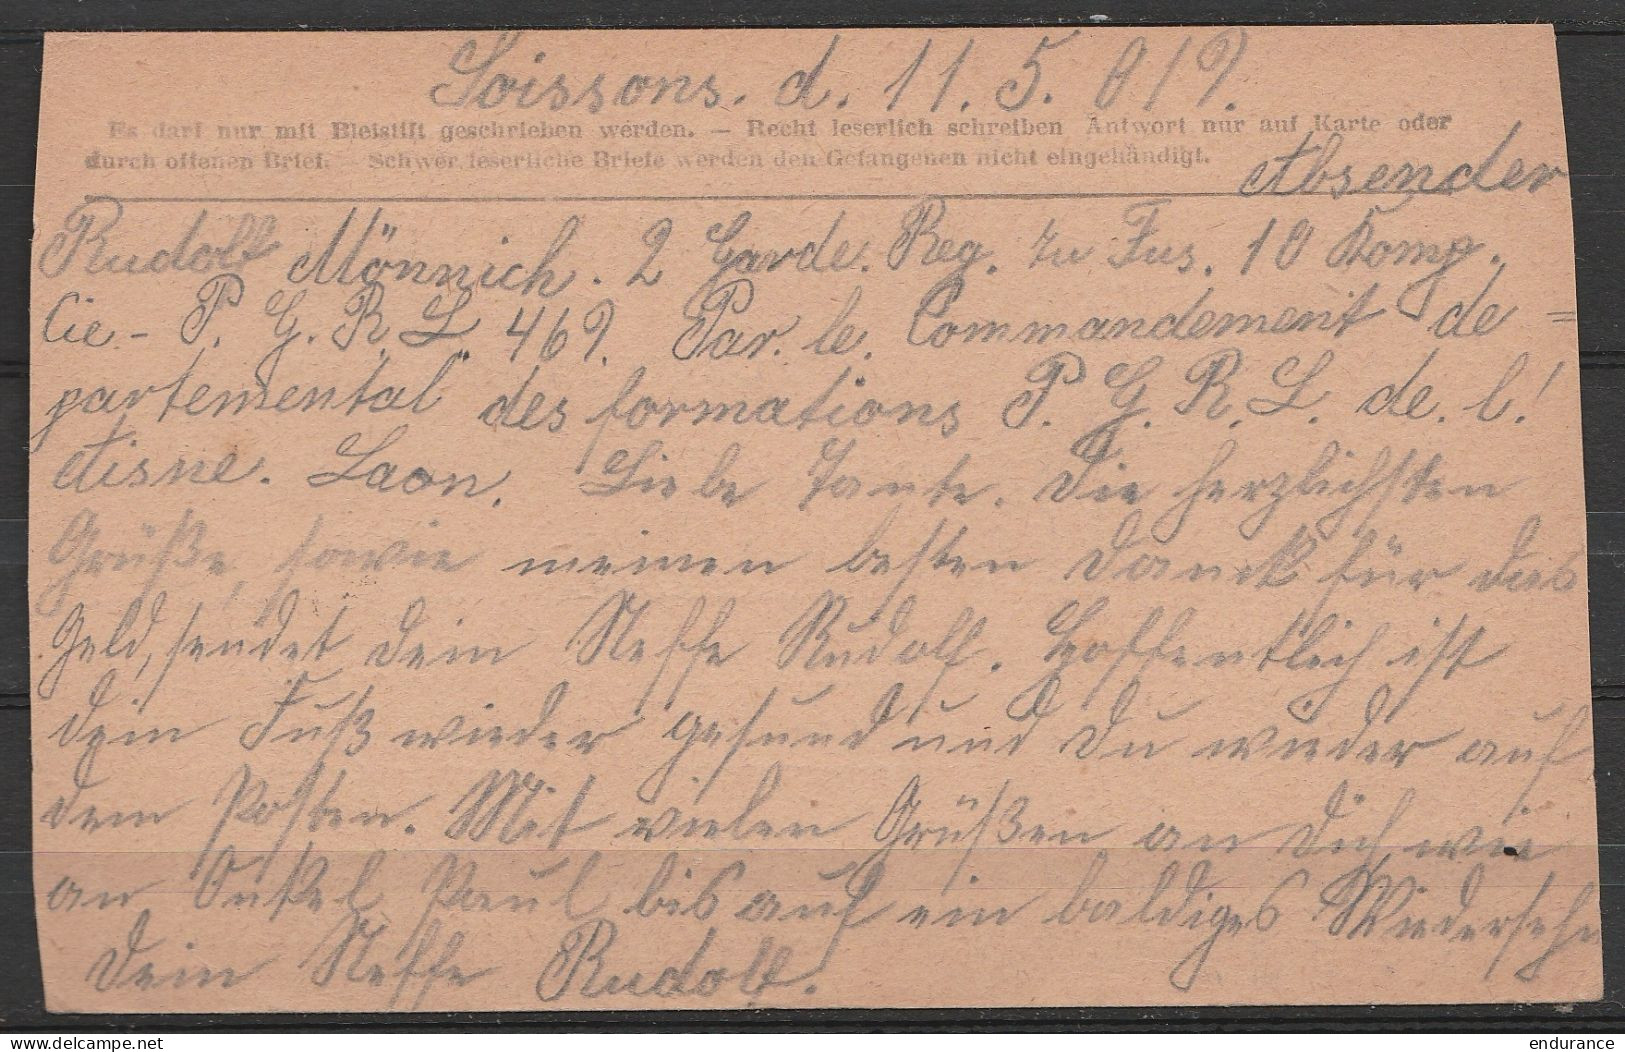 Soissons. d. 11. 5. 019.
Es darf nur mit Bleistift geschrieben werden. — Recht leserlich schreiben Antwort nur auf Karte oder
durch offenen Brief. — Schwer leserliche Briefe werden den Gefangenen nicht eingehändigt.
Absender
Rudolf Mönnich. 2 Garde. Reg. zu Fus. 10 Komp.
Cie - P. G. R. L 469. Par. le. Commandement de =
partemental des formations P. G. R. L. de. l!
Aisne. Laon. Liebe Tante. Die herzlichsten
Grüße, sowie meinen besten Danck für das
Geld, sendet dein Neffe Rudolf. Hoffentlich ist
dein Fuß wieder gesund und Du wieder auf
dem Posten. Mit vielen Grüßen an Dich wie
an Onkel Paul bis auf ein baldiges Wiedersehn
Dein Neffe Rudolf.
endurance
delcampe.net